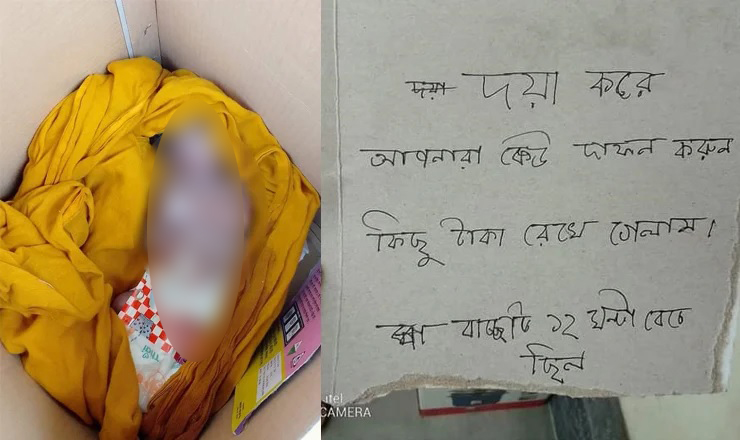 দয়া করে
আপনারা কেউ দাফন করুন
কিছু টাকা রেখে গেলাম।
বাচ্চাটি ১২ ঘন্টা বেচে
ছিল
itel
CAMERA